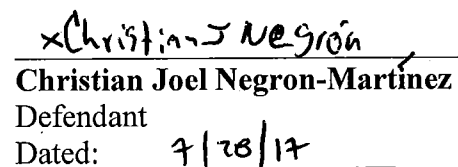 xChristian J Negrón
Christian Joel Negron-Martínez
Defendant
Dated: 7/28/17